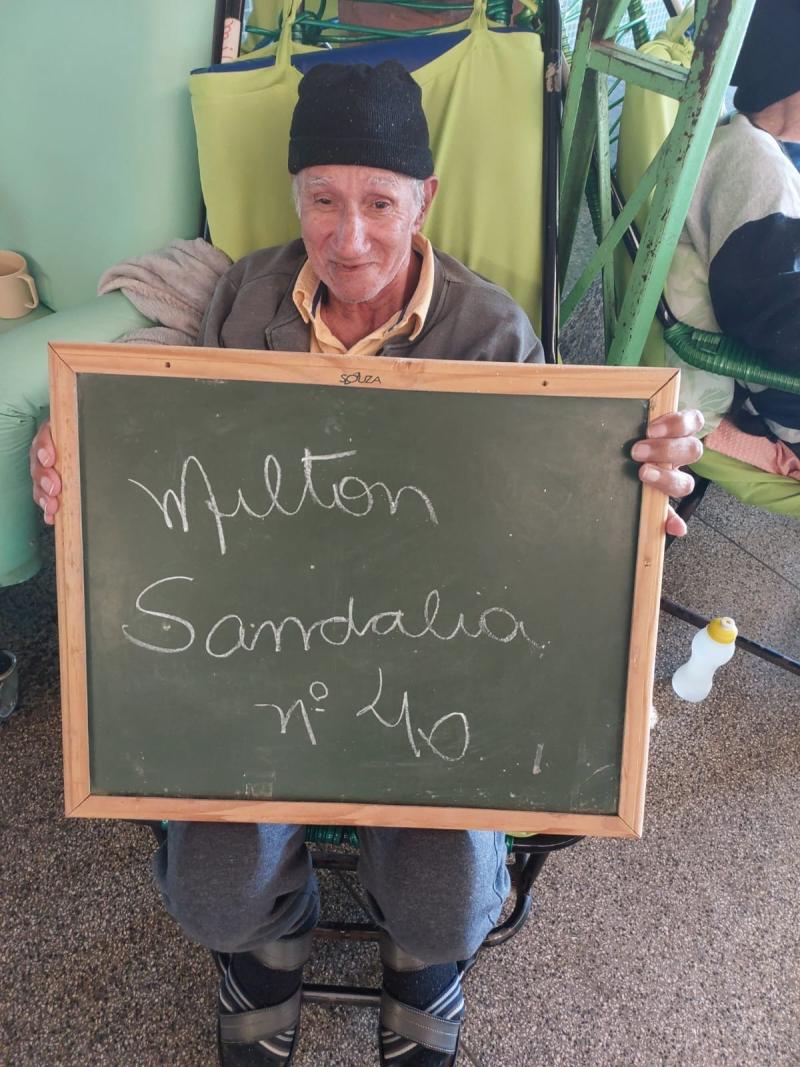 SOUZA
Milton
Sandalia
nº 40